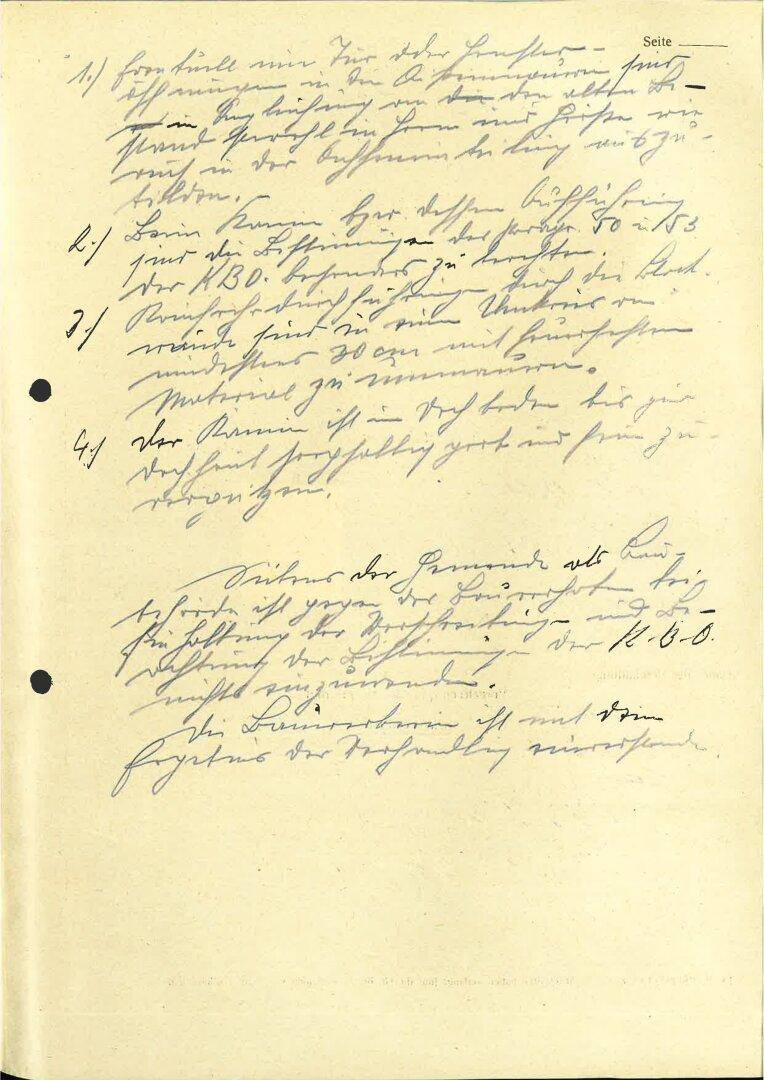 Seite
1.) Eventuell neue Tür oder Fenster-
öffnungen in den Aussenmauern sind
in Angleichung an die den alten Be-
stand sowohl in Form und Größe wie
auch in der Achseneinteilung auszu-
bilden.
2.) Beim Kamin bzw. dessen Ausführung
sind die Bestimmungen des Paragr. 50 u. 153
der K.B.O. besonders zu beachten.
3.) Rauchrohrdurchführungen durch die Block-
wände sind in einem Umkreis von
mindestens 30 cm mit feuerfesten
Material zu ummauern.
4.) der Kamin ist im Dachboden bis zur
Dachhaut sorgfältig grob und fein zu
verputzen.
Seitens der Gemeinde als Bau-
behörde ist gegen das Bauvorhaben bei
Einhaltung der Vorschreibungen und Be-
achtung der Bestimmungen der K.B.O.
nichts einzuwenden.
Die Bauwerberin ist mit dem
Ergebnis der Verhandlung einverstanden.